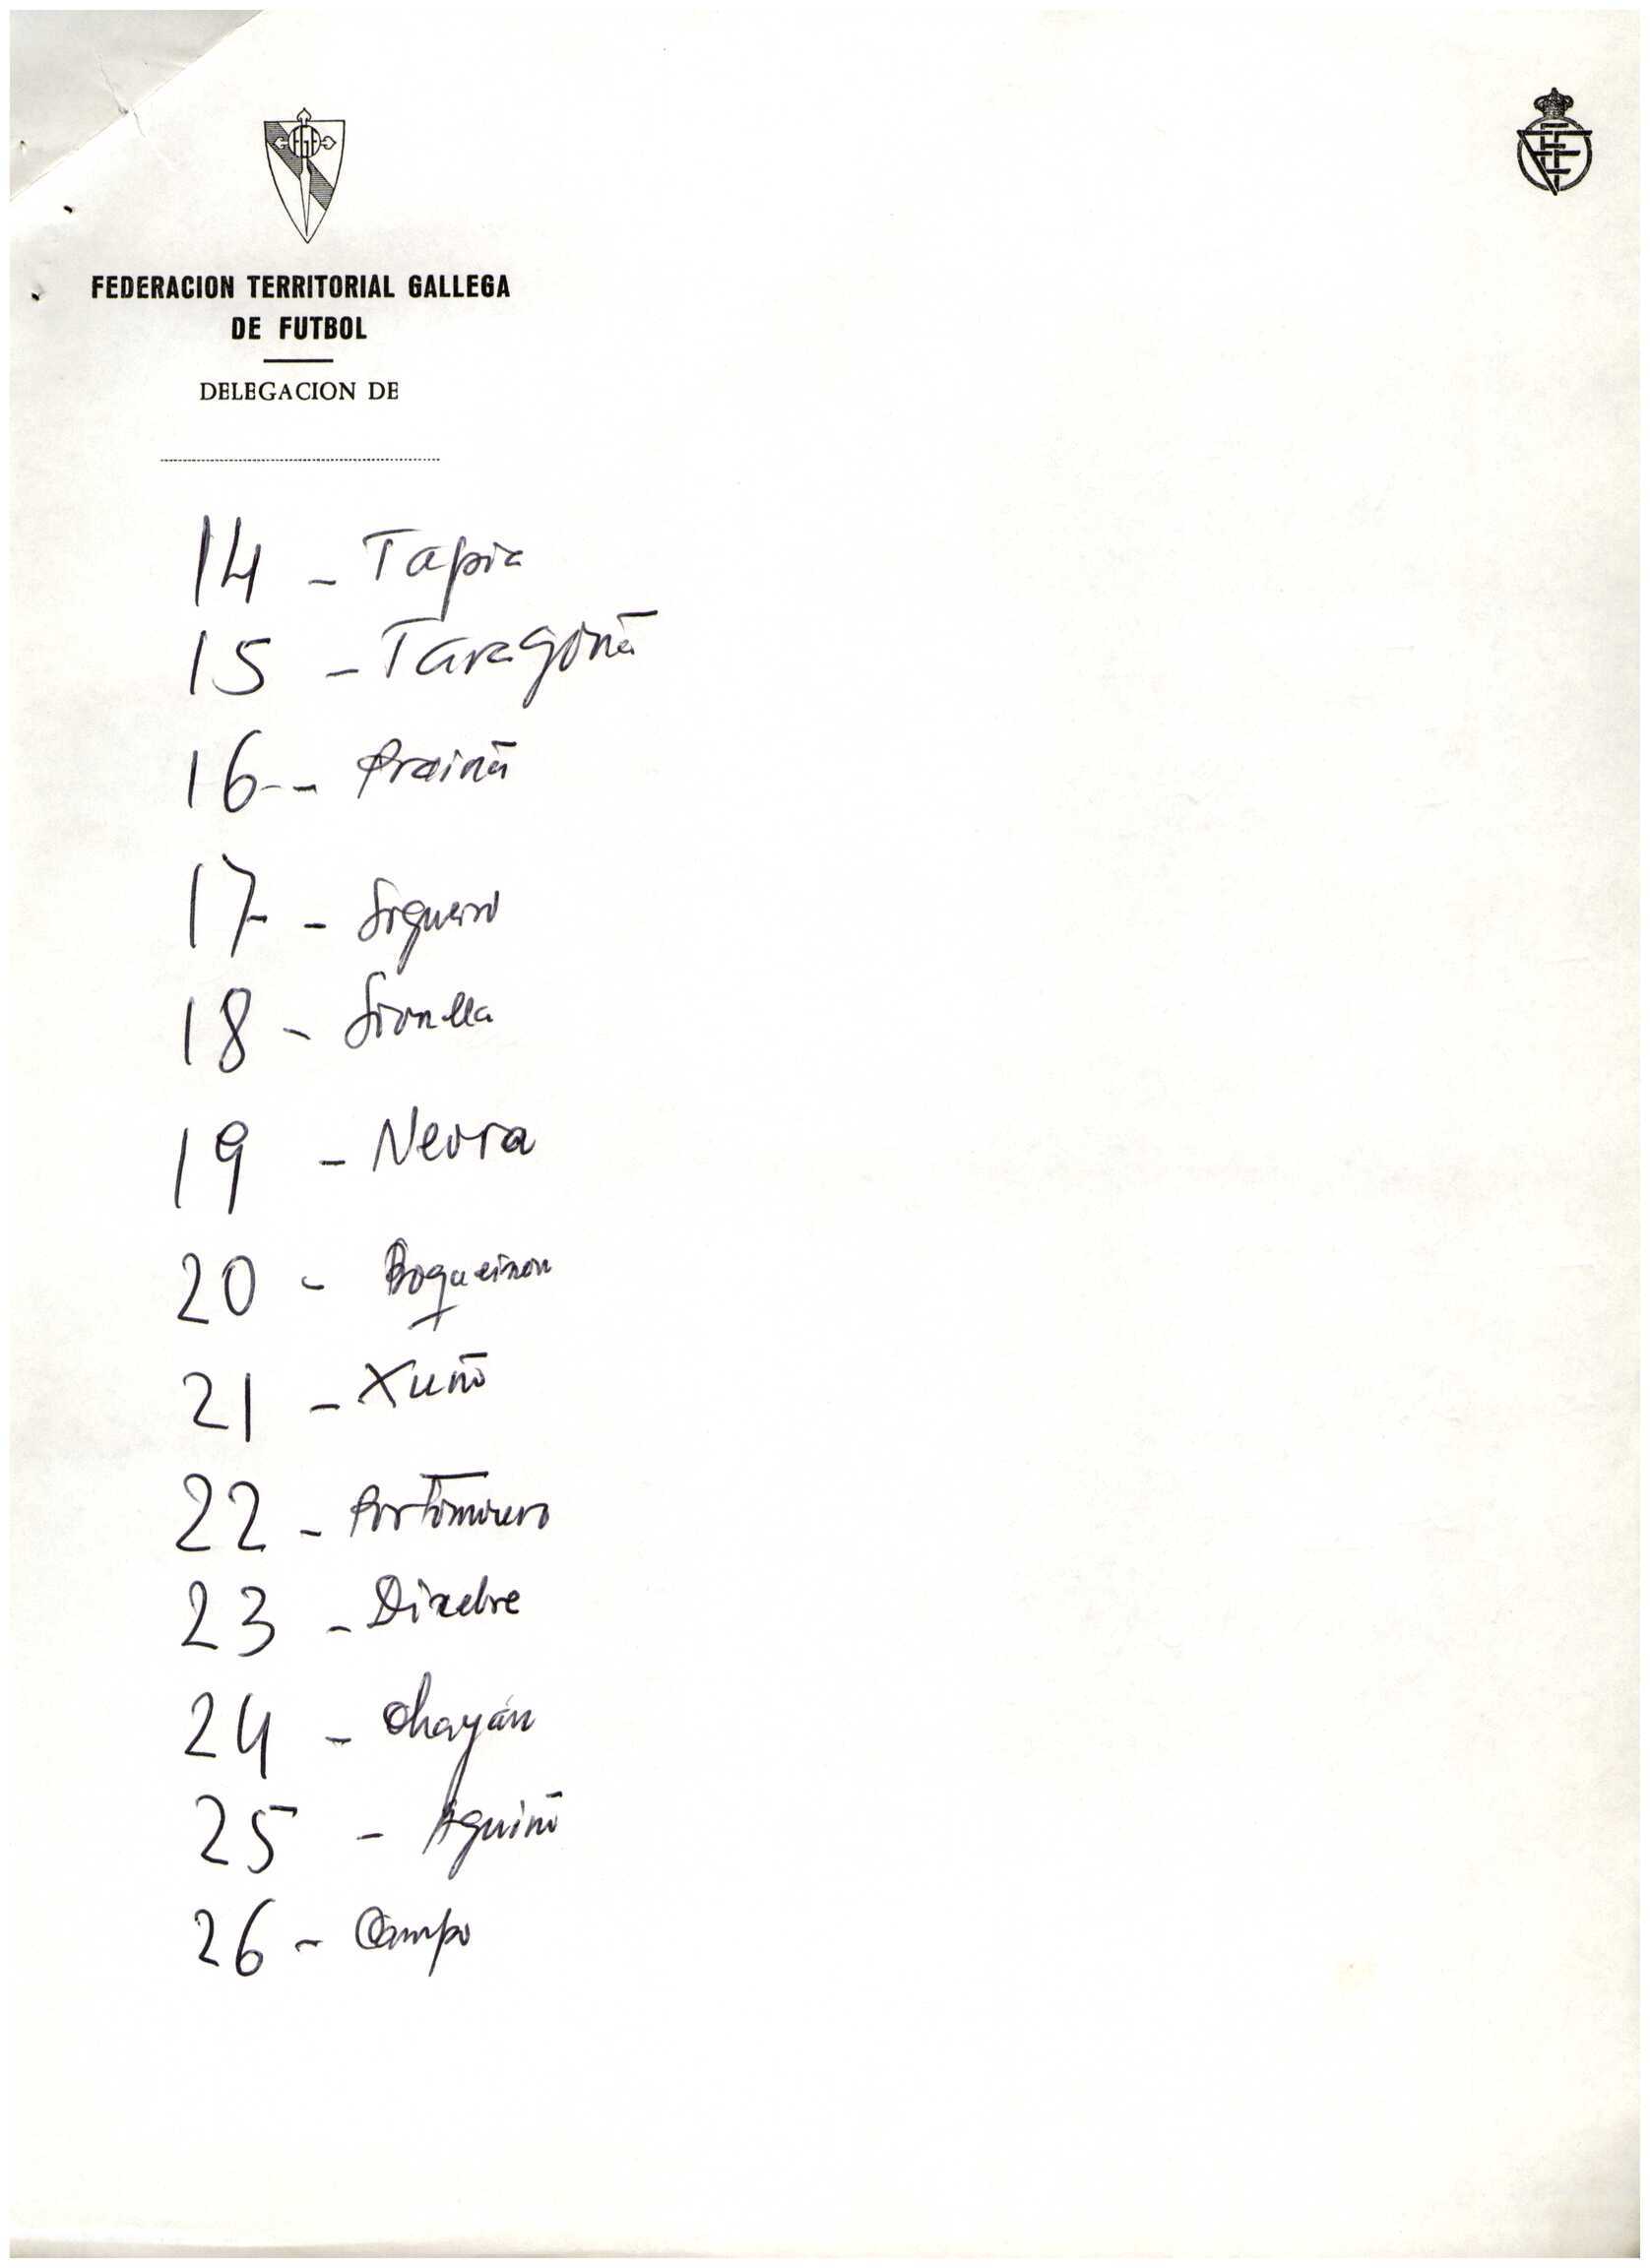 FEDERACION TERRITORIAL GALLEGA
DE FUTBOL
DELEGACION DE
14 - Tapia
15 - Taragoña
16 - Praiña
17 - Sigueiro
18 - Sionlla
19 - Nevra
20 - Boqueixon
21 - Xuño
22 - Portomouro
23 - Dixebre
24 - Chayán
25 - Aguiño
26 - Campo